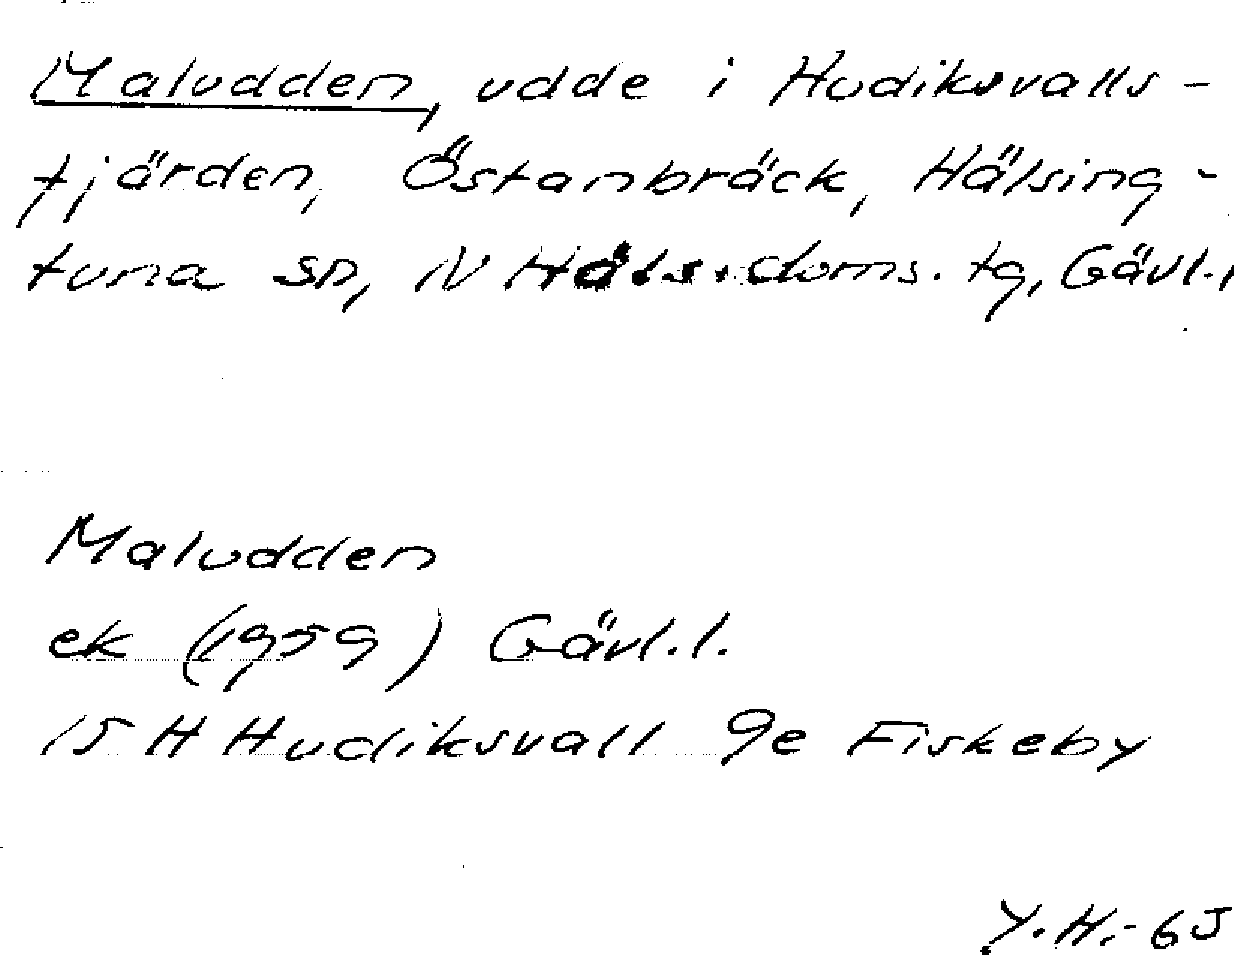 Maludden, udde i Hudiksvalls-
fjärden, Östanbräck, Hälsing-
tuna sn, N Häls. doms. tg, Gävl.l
Maludden
ek (1959) Gävl.l.
15 H Hudiksvall 9e Fiskeby
Y.H.-65